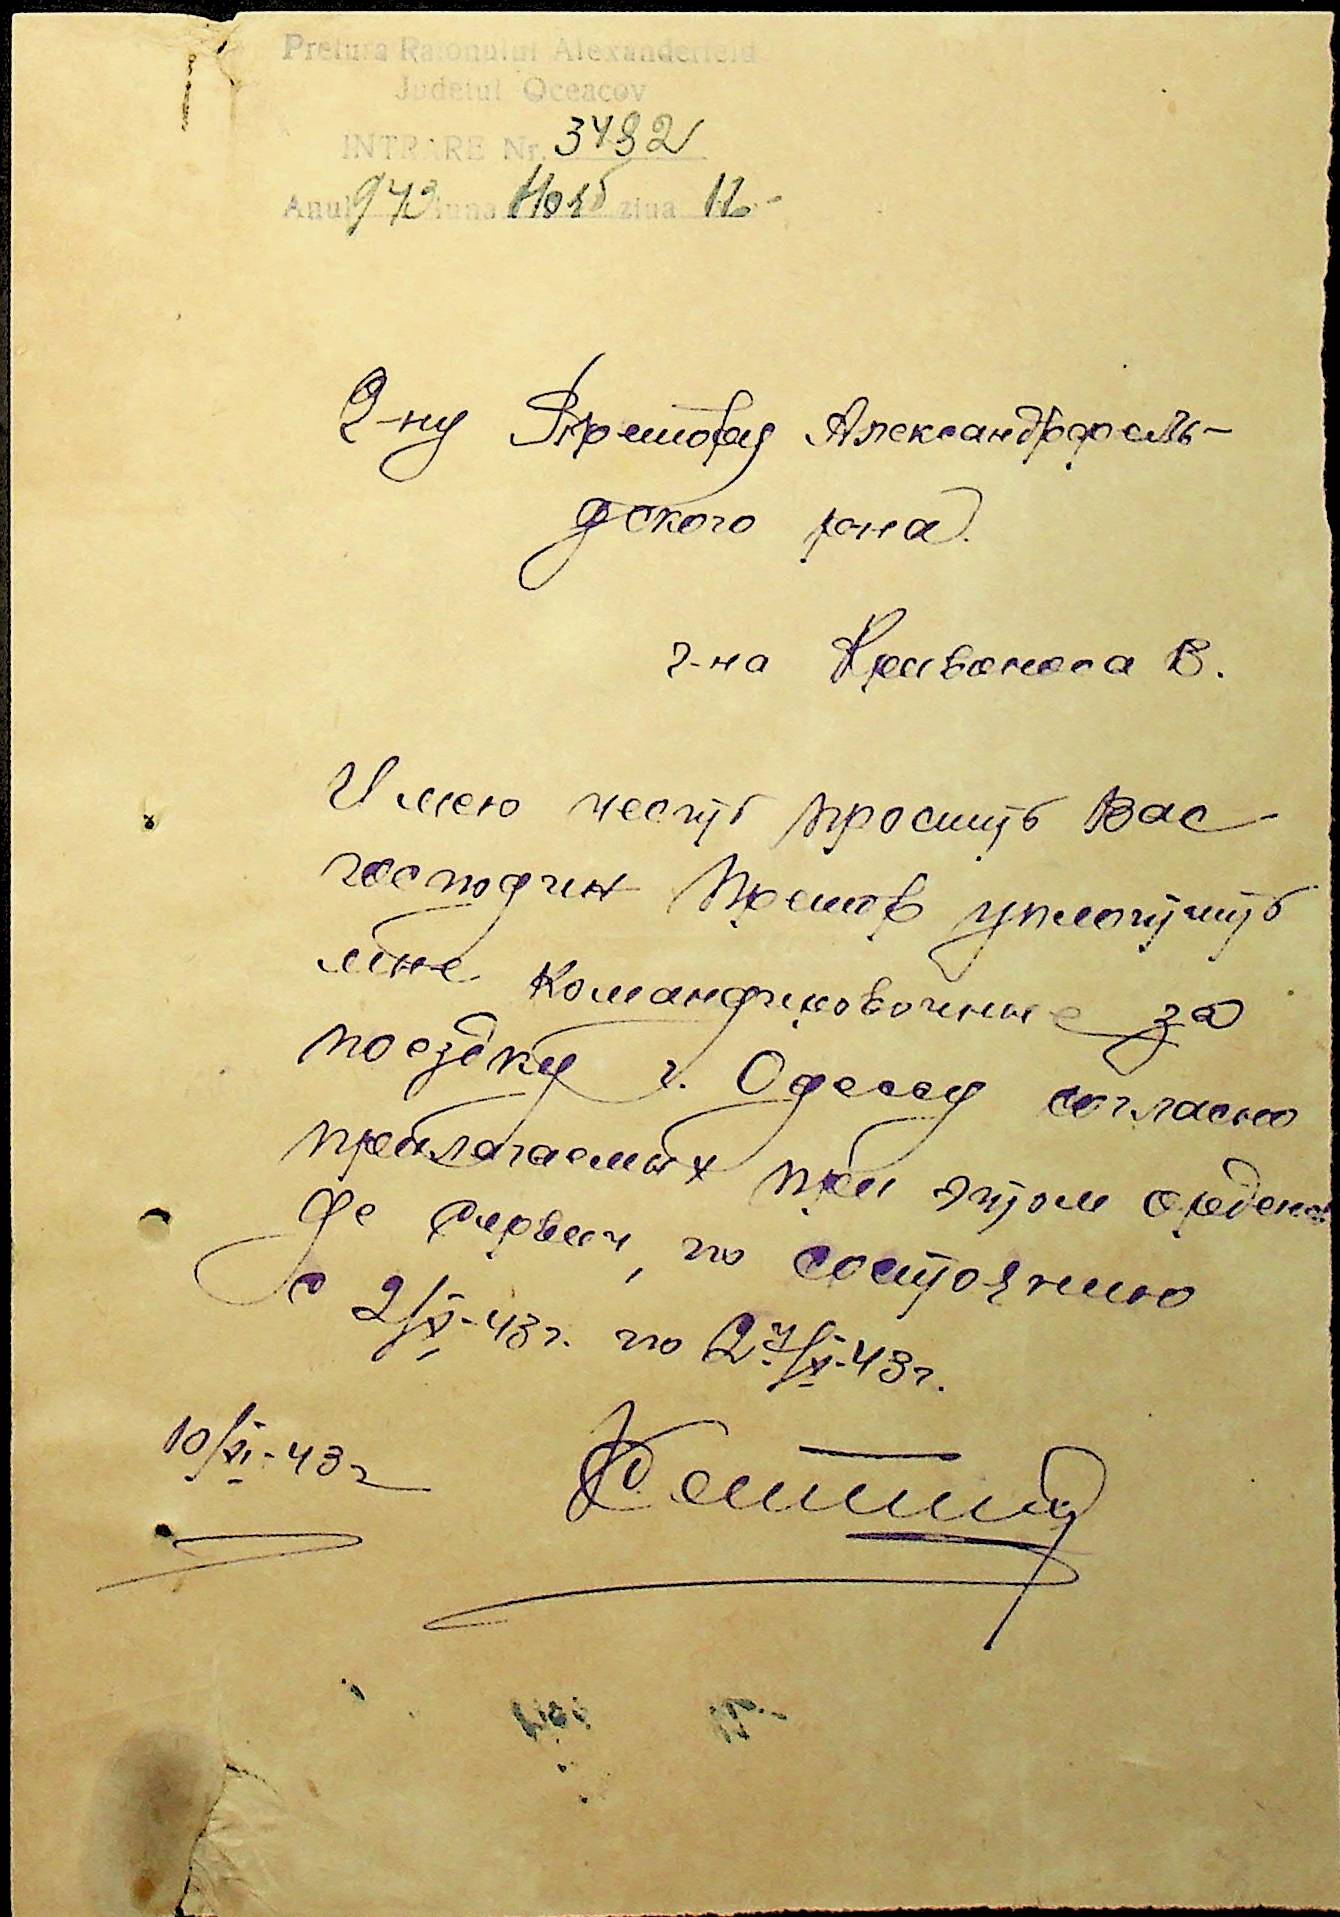 Pretura Raionului Alexanderfeld
Judetul Oceacov
INTRARE Nr. 3482
Anul 943 luna Нояб ziua 12
Г-ну Претору Александрфель-
дского р-на
г-на Кривоноса В.
Имею честь просить Вас
господин претор уплотить
мне командировочные за
поездку г. Одессу согласно
прилагаемых при этом орденов
де сервич, по состоянию
с 2/X-43г. по 27/X-43г.
10/XI-43г